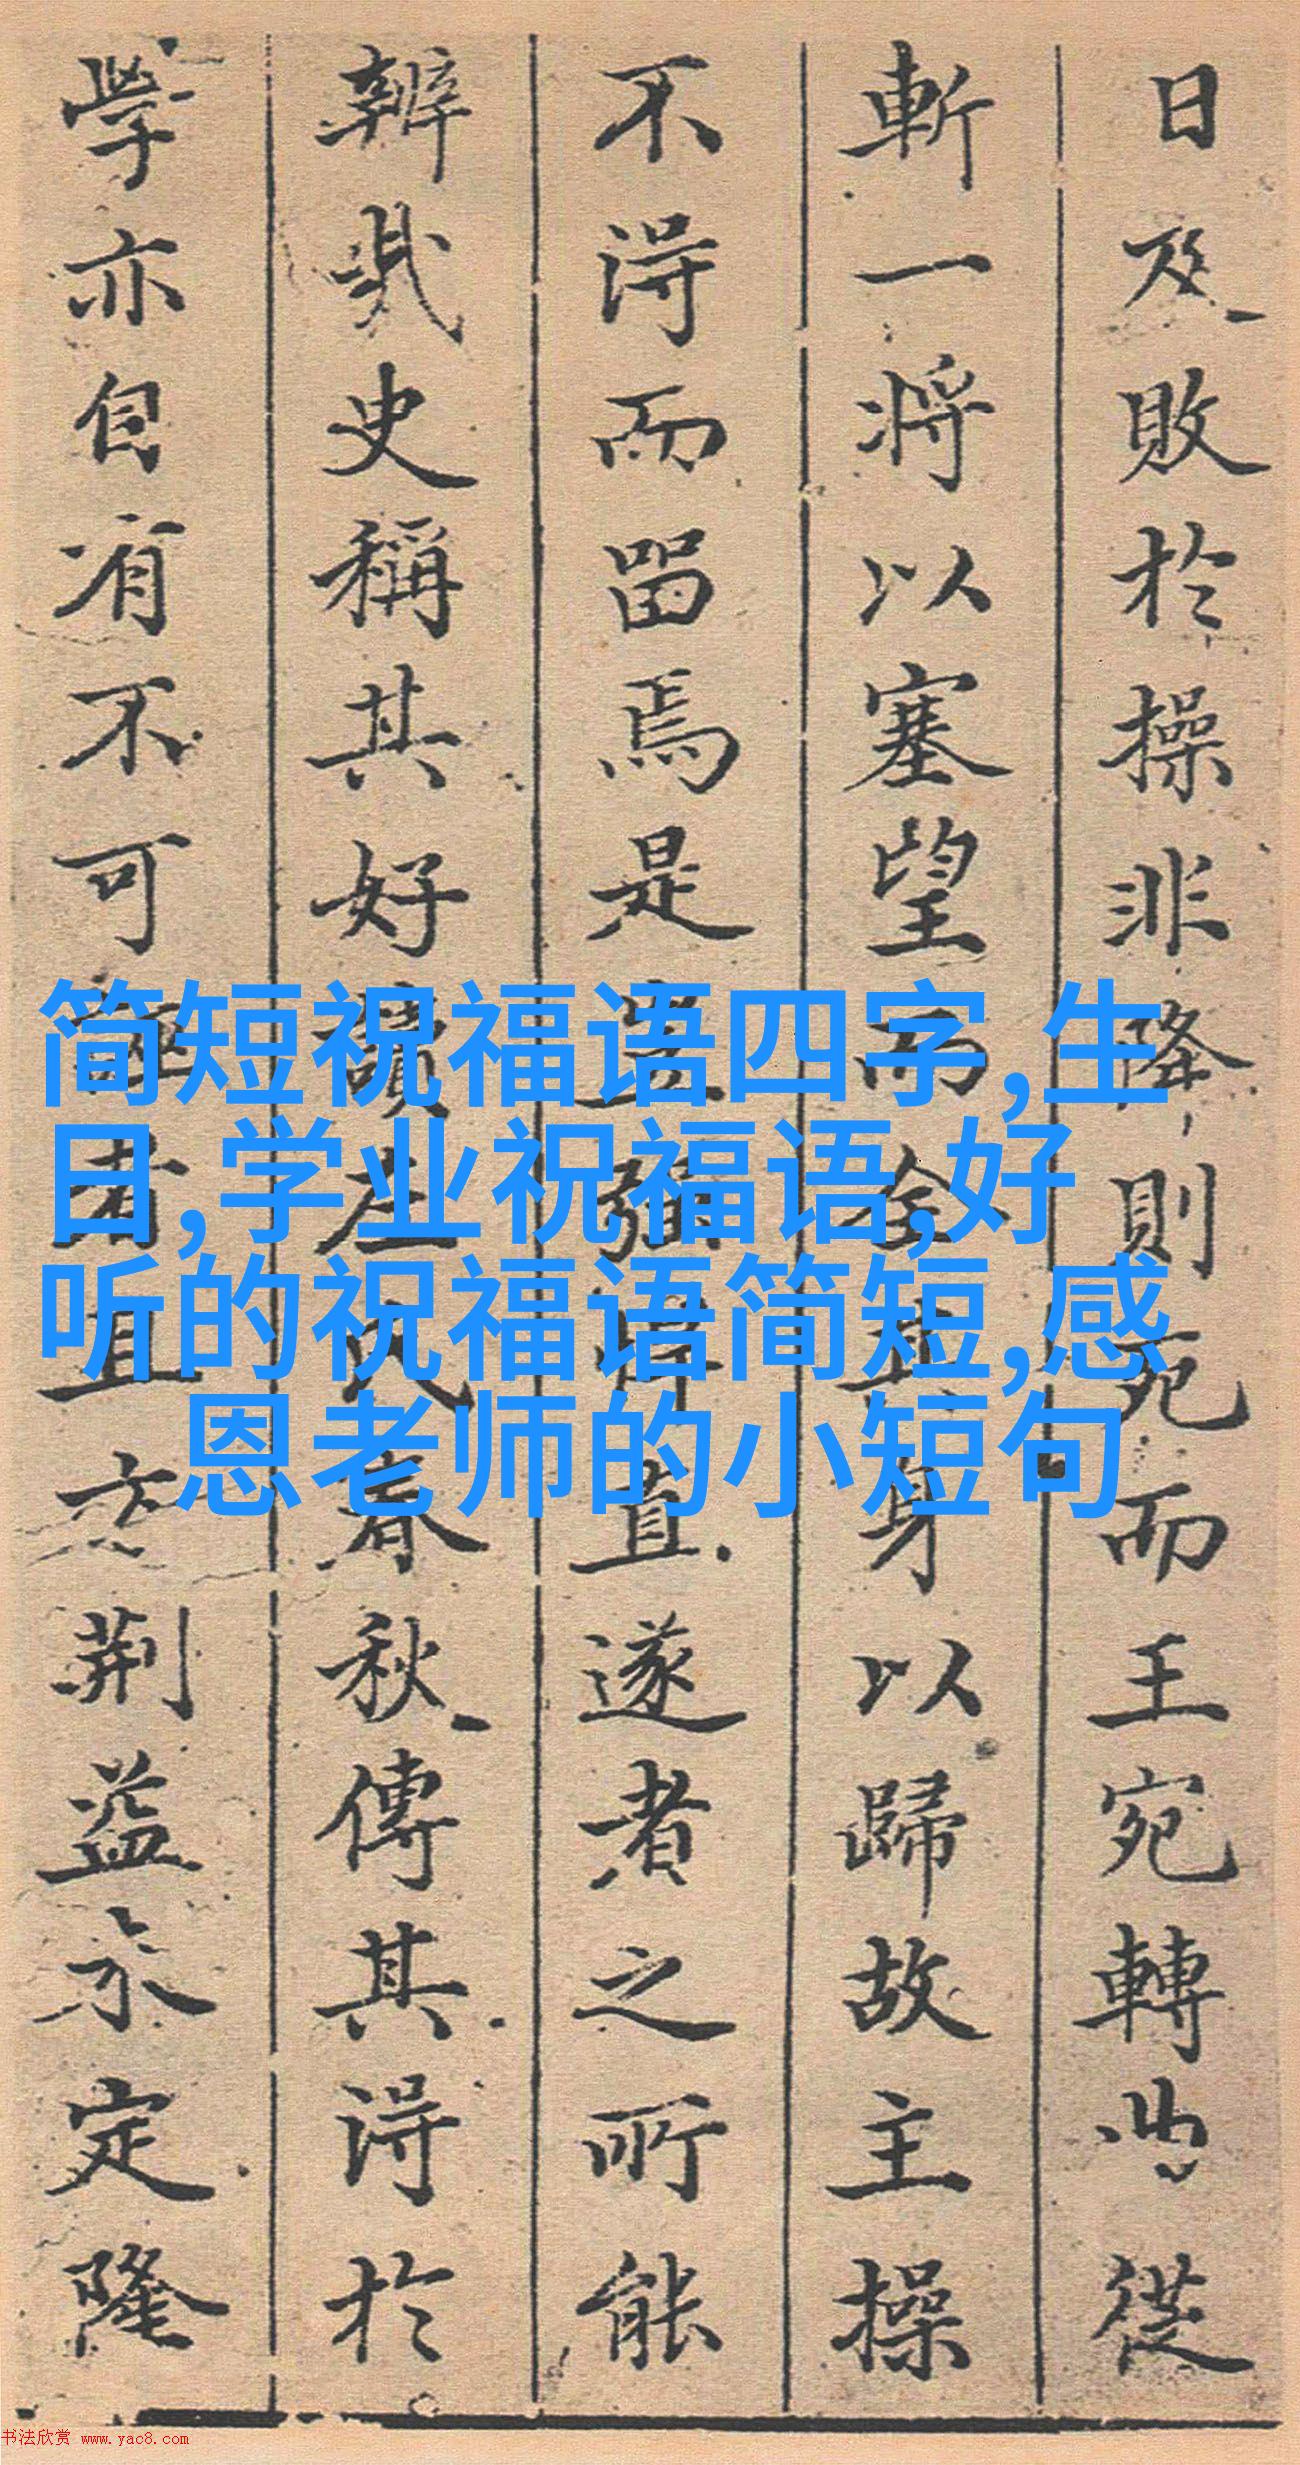 日及敗於操非降則死而王宛轉曲從
斬一將以塞望而全其身以歸故主操
不得而留焉是豈強悍直遂者之所能
辨哉史稱其好讀左氏春秋傳其得於
學亦自有不可誣者且夫荆益未定隆
简短祝福语四字,生
日,学业祝福语,好
听的祝福语简短,感
恩老师的小短句
书法欣赏 www.yac8.com